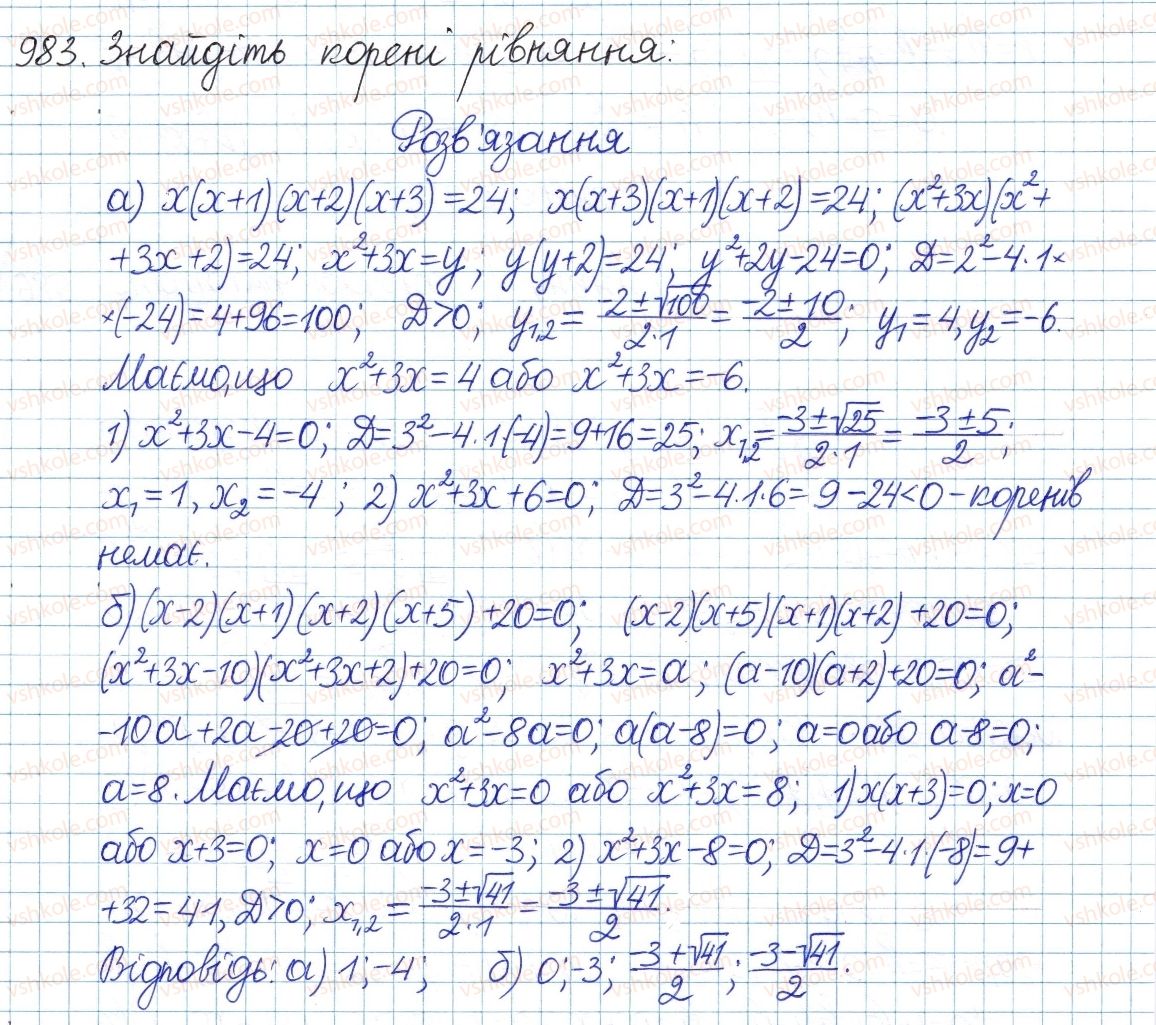 983. Знайдіть корені рівняння:
Розв'язання
а) x(x+1)(x+2)(x+3)=24; x(x+3)(x+1)(x+2)=24; (x²+3x)(x²+
+3x+2)=24; x²+3x=y; y(y+2)=24; y²+2y-24=0; Д=2²-4·1×
×(-24)=4+96=100; Д>0; y₁,₂ = (-2±√100)/(2·1) = (-2±10)/2; y₁=4, y₂=-6.
Маємо, що x²+3x=4 або x²+3x=-6.
1) x²+3x-4=0; Д=3²-4·1·(-4)=9+16=25; x₁,₂ = (-3±√25)/(2·1) = (-3±5)/2;
x₁=1, x₂=-4; 2) x²+3x+6=0; Д=3²-4·1·6=9-24<0 - коренів
немає.
б) (x-2)(x+1)(x+2)(x+5)+20=0; (x-2)(x+5)(x+1)(x+2)+20=0;
(x²+3x-10)(x²+3x+2)+20=0; x²+3x=a; (a-10)(a+2)+20=0; a²-
-10a+2a-20+20=0; a²-8a=0; a(a-8)=0; a=0 або a-8=0;
a=8. Маємо, що x²+3x=0 або x²+3x=8; 1) x(x+3)=0; x=0
або x+3=0; x=0 або x=-3; 2) x²+3x-8=0; Д=3²-4·1·(-8)=9+
+32=41, Д>0; x₁,₂ = (-3±√41)/(2·1) = (-3±√41)/2.
Відповідь: а) 1; -4; б) 0; -3; (-3+√41)/2; (-3-√41)/2.